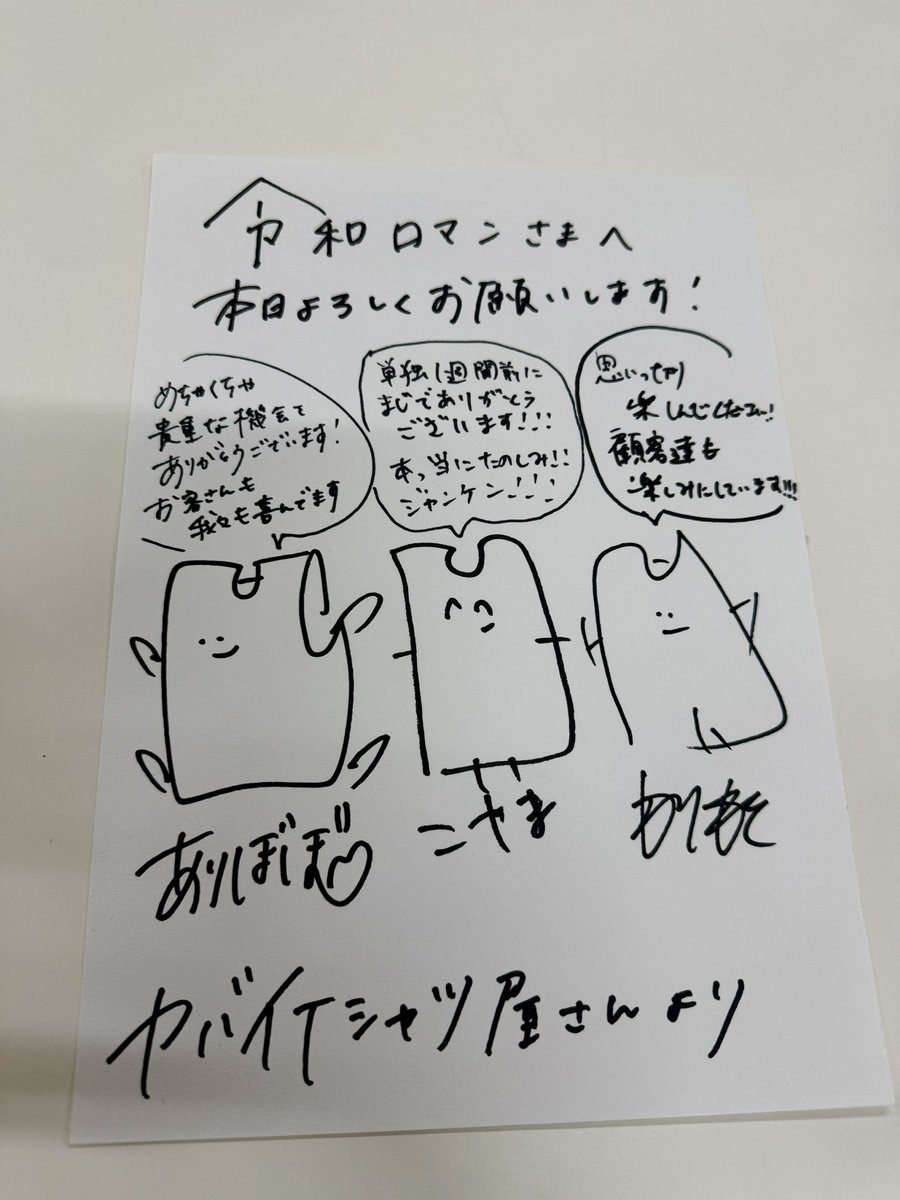 令和ロマンさまへ
本日よろしくお願いします!
めちゃくちゃ
貴重な機会を
ありがとうございます!
お客さんも
我々も喜んでます
単独1週間前に
まじでありがとう
ございます!!!
本っ当にたのしみ!!
ジャンケン!!!
思いっきり
楽しんでください!!
顧客達も
楽しみにしています!!!
ありぼぼ
こやま
もりもと
ヤバイTシャツ屋さんより